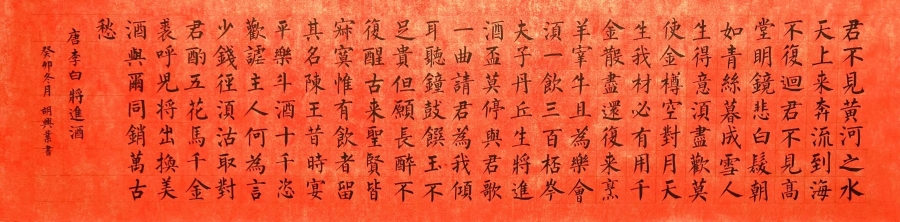 君不見黃河之水
天上来奔流到海
不復迴君不見高
堂明鏡悲白髮朝
如青絲暮成雪人
生得意須盡歡莫
使金樽空對月天
生我材必有用千
金散盡還復来烹
羊宰牛且為樂會
須一飲三百桮岑
夫子丹丘生將進
酒盃莫停與君歌
一曲請君為我傾
耳聽鐘鼓饌玉不
足貴但願長醉不
復醒古来聖賢皆
寂寞惟有飲者留
其名陳王昔時宴
平樂斗酒十千恣
歡謔主人何為言
少錢徑須沽取對
君酌五花馬千金
裘呼兒將出換美
酒與爾同銷萬古
愁
唐李白將進酒
癸卯冬月 胡興業書